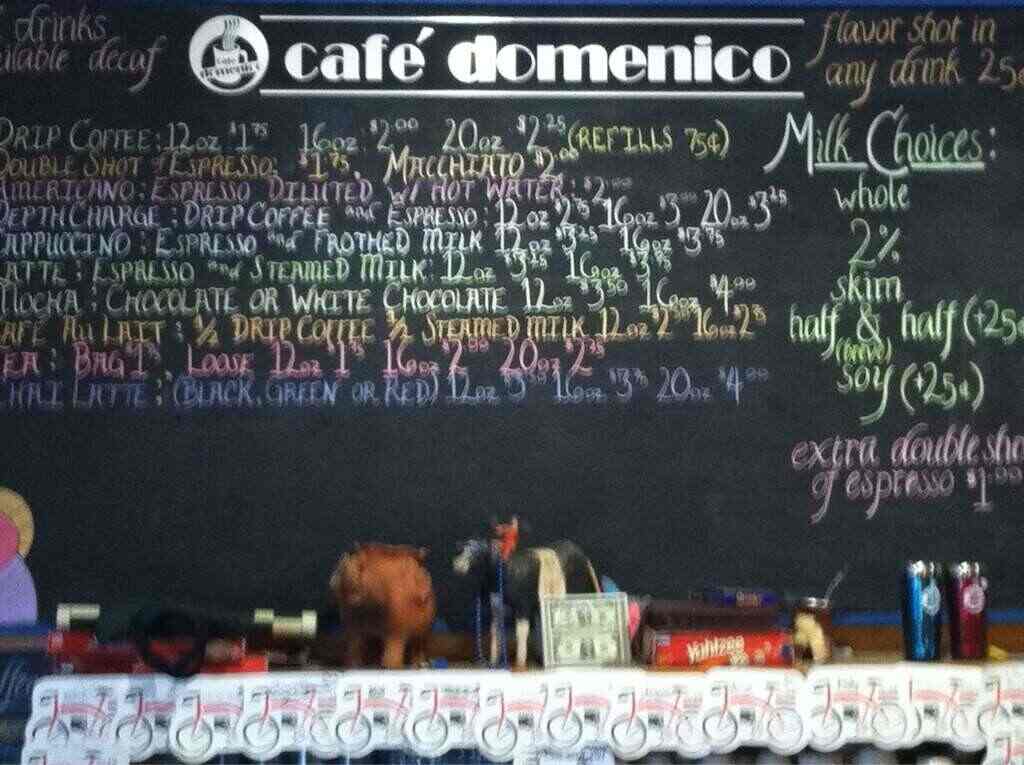 drinks
decaf
café domenico
flavor shot in
any drink 25¢
DRIP COFFEE: 12oz $1.75 16oz $2.00 20oz $2.25 (REFILLS 75¢)
DOUBLE SHOT of ESPRESSO: $1.75, MACCHIATO $2.00
AMERICANO: ESPRESSO DILUTED w/ HOT WATER: $2.00
DEPTH CHARGE: DRIP COFFEE and ESPRESSO: 12oz $2.75 16oz $3.00 20oz $3.25
CAPPUCCINO: ESPRESSO and FROTHED MILK 12oz $3.25 16oz $3.75
LATTE: ESPRESSO and STEAMED MILK: 12oz $3.25 16oz $3.75
MOCHA: CHOCOLATE OR WHITE CHOCOLATE 12oz $3.50 16oz $4.00
CAFÉ AU LAIT: 1/2 DRIP COFFEE 1/2 STEAMED MILK 12oz 16oz
TEA: BAG LOOSE 12oz 16oz 20oz
CHAI LATTE: (BLACK, GREEN OR RED) 12oz 16oz 20oz $4.00
Milk Choices:
whole
2%
skim
half & half (+25¢
(breve)
soy (+25¢)
extra double sho
of espresso $1.00
Yahtzee